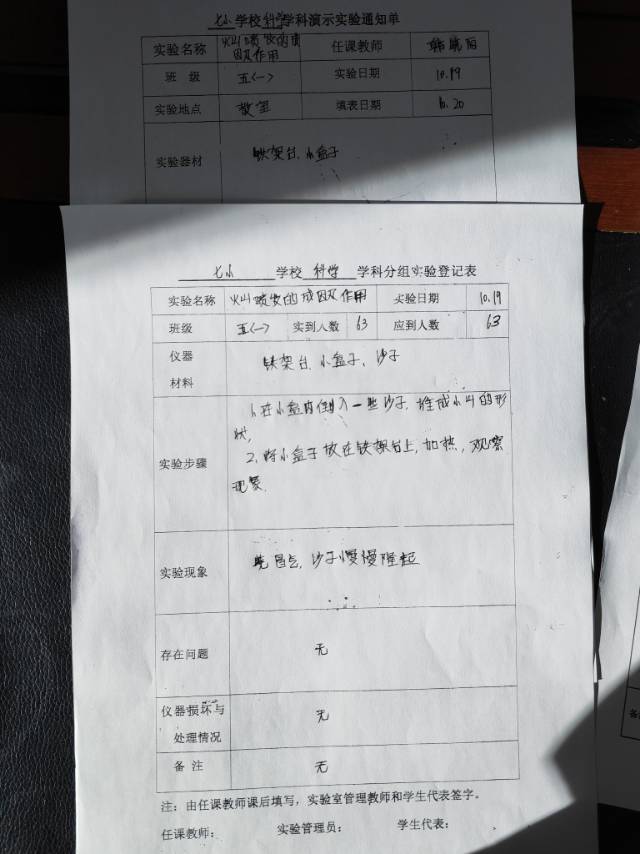 七小学校科学学科演示实验通知单
实验名称 火山喷发的成因及作用 任课教师
班 级 五(一) 实验日期 10.19
实验地点 教室 填表日期 10.20
实验器材 铁架台、小盒子
七小 学校 科学 学科分组实验登记表
实验名称 火山喷发的成因及作用 实验日期 10.19
班级 五(一) 实到人数 63 应到人数 63
仪器
材料
铁架台、小盒子、沙子
实验步骤
1、在小盒内倒入一些沙子,堆成小山的形
状,
2、将小盒子放在铁架台上,加热,观察
现象.
实验现象 先冒点,沙子慢慢隆起
存在问题 无
仪器损坏与
处理情况
无
备 注 无
注:由任课教师课后填写,实验室管理教师和学生代表签字。
任课教师: 实验管理员: 学生代表: